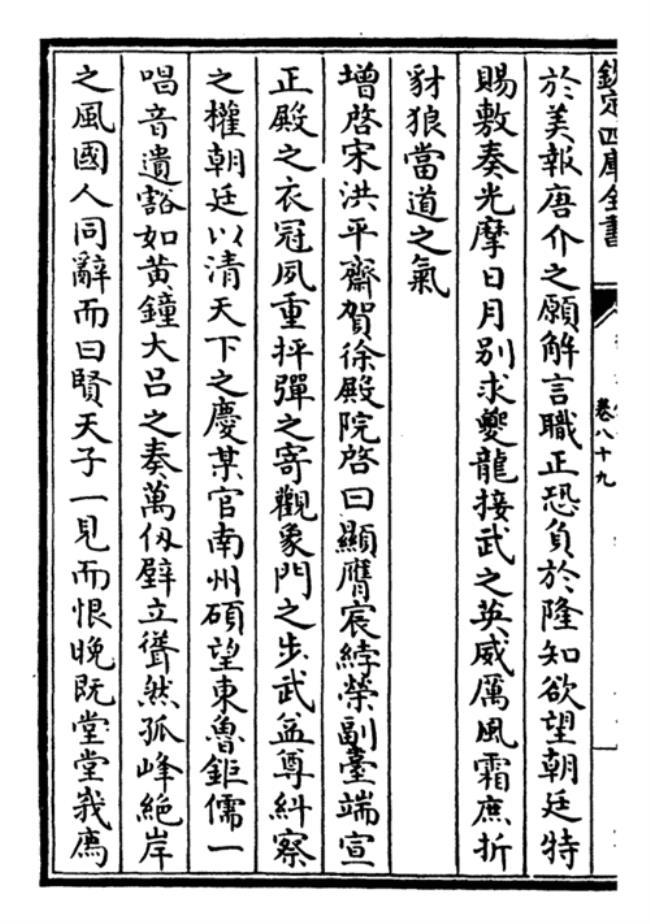 欽定四庫全書
卷八十九
於美報唐介之願解言職正恐負於隆知欲望朝廷特
賜敷奏光摩日月別求夔龍接武之英威厲風霜庶折
豺狼當道之氣
增啓宋洪平齋賀徐殿院啓曰顯膺宸綍榮副臺端宣
正殿之衣冠夙重抨彈之寄觀象門之步武益尊糾察
之權朝廷以清天下之慶某官南州碩望東魯鉅儒一
唱音遺豁如黃鐘大呂之奏萬仭壁立聳然孤峰絶岸
之風國人同辭而曰賢天子一見而恨晚既堂堂峩廌